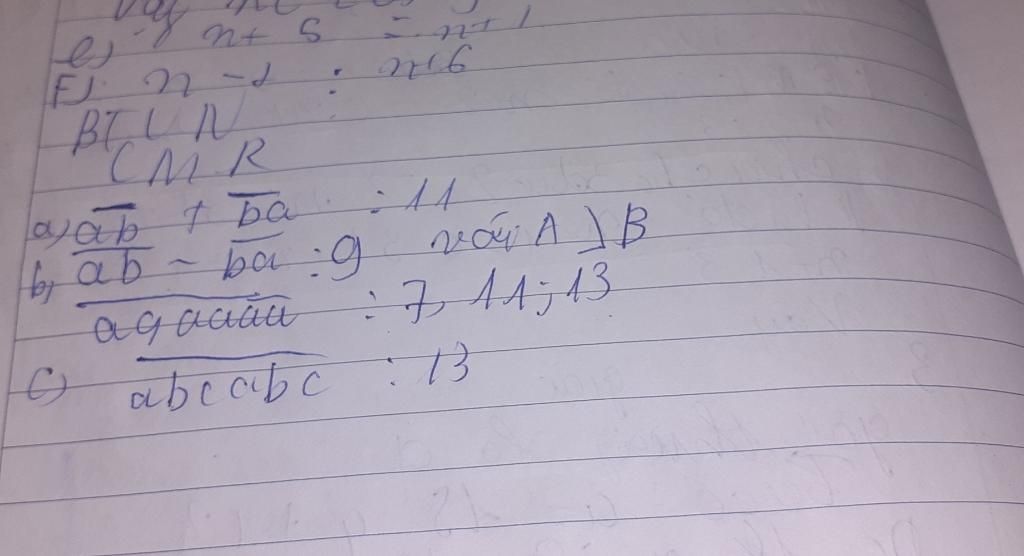 e) n + 5 : n + 1
F) n - 1 : n + 6
BTVN
CMR
a) ab + ba : 11
b) ab - ba : 9 với A > B
aaaaaa : 7, 11; 13
c) abcabc : 13